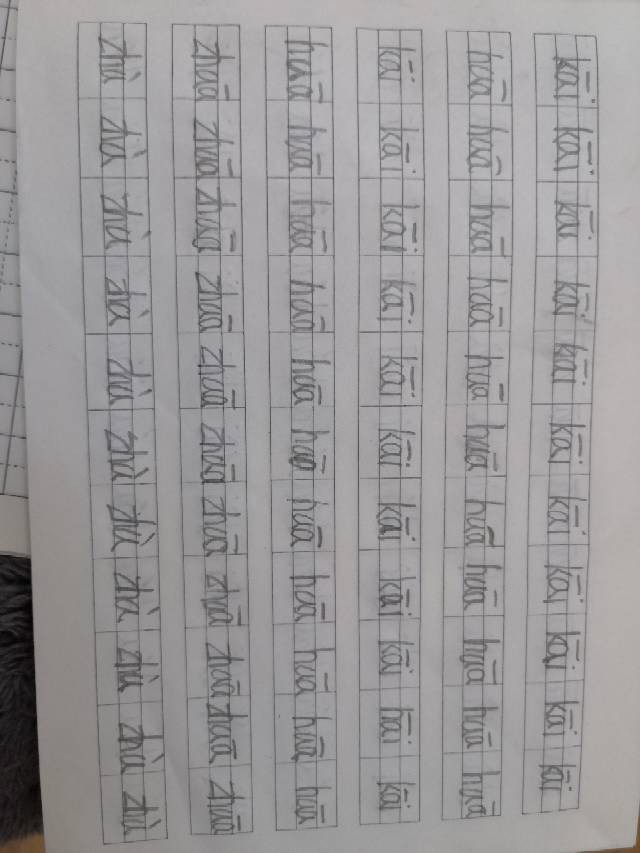 kāi kāi kāi kāi kāi kāi kāi kāi kāi kāi kāi
huā huā huā huā huā huā huā huā huā huā huā
kāi kāi kāi kāi kāi kāi kāi kāi kāi kāi kāi
huā huā huā huā huā huā huā huā huā huā huā
zhuā zhuā zhuā zhuā zhuā zhuā zhuā zhuā zhuā zhuā zhuā
zhù zhù zhù zhù zhù zhù zhù zhù zhù zhù zhù